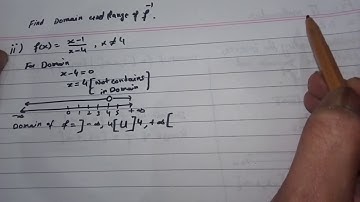 Find Domain and Range of f⁻¹
ii) f(x) = x-1/x-4 , x ≠ 4
For Domain
x-4=0
x=4 [Not contains
in Domain]
-∞ 0 1 2 3 4 5 +∞
Domain of f = ]-∞, 4[ U ]4, +∞[